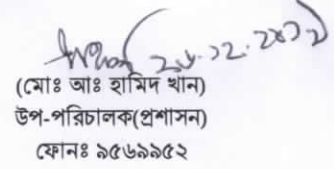 ২৮.১২.২০১১
(মোঃ আঃ হামিদ খান)
উপ-পরিচালক(প্রশাসন)
ফোনঃ ৯৫৬৯৯৫২